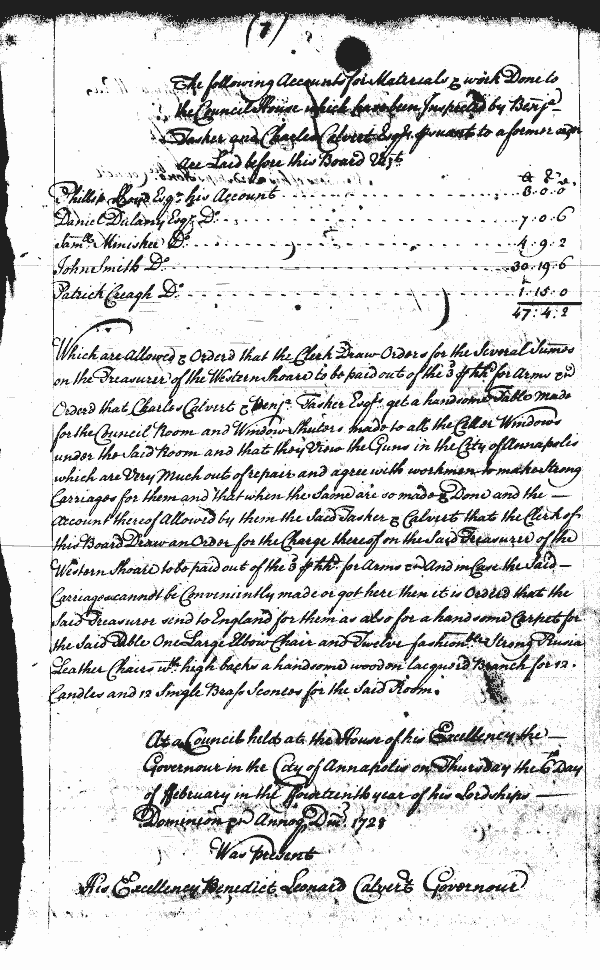 (7)
The following Accounts for Materials & work Done to
the Council House which have been Inspected by Benja
Tasher and Charles Calvert Esqrs. psuant to a former order
are Laid before this Board Vizt
Phillip Lloyd Esqr. his Account 3. 0. 0
Daniel Dulany Esqr. Do. 7. 0. 6
Samll. Minskee Do. 4. 9. 2
John Smith Do. 30. 19. 6
Patrick Creagh Do. 1. 15. 0
47. 4. 2
Which are Allowed & Orderd that the Clerk Draw Orders for the Several Sums
on the Treasurer of the Western Shoare to be paid out of the 3d p hhd for Arms &c
Orderd that Charles Calvert & Benja. Tasher Esqrs get a handsome Table made
for the Council Room and Window Shuters made to all the Celler Windows
under the Said Room and that they View the Guns in the City of Annapolis
which are Very Much out of repair and agree with workmen to make Strong
Carriages for them and that when the Same are so made & Done and the —
Account thereof Allowed by them the Said Tasher & Calvert that the Clerk of
this Board Draw an Order for the Charge thereof on the Said Treasurer of the
Western Shoare to be paid out of the 3d p hhd. for Arms &c And in Case the Said —
Carriages cannot be Conveniently made or got here then it is Orderd that the
Said Treasurer send to England for them as also for a handsome Carpet for
the Said Table One Large Elbow Chair and Twelve fashionble Strong Rusia
Leather Chairs wth. high backs a handsome wooden lacquerd Branch for 12.
Candles and 12 Single Brass Sconces for the Said Room.
At a Council held at the House of his Excellency the —
Governour in the City of Annapolis on Thursday the 6th Day
of ffebruary in the ffourteenth year of his Lordships —
Dominion &c Annoq Dni. 1728
Was present
His Excellency Benedict Leonard Calvert Governour